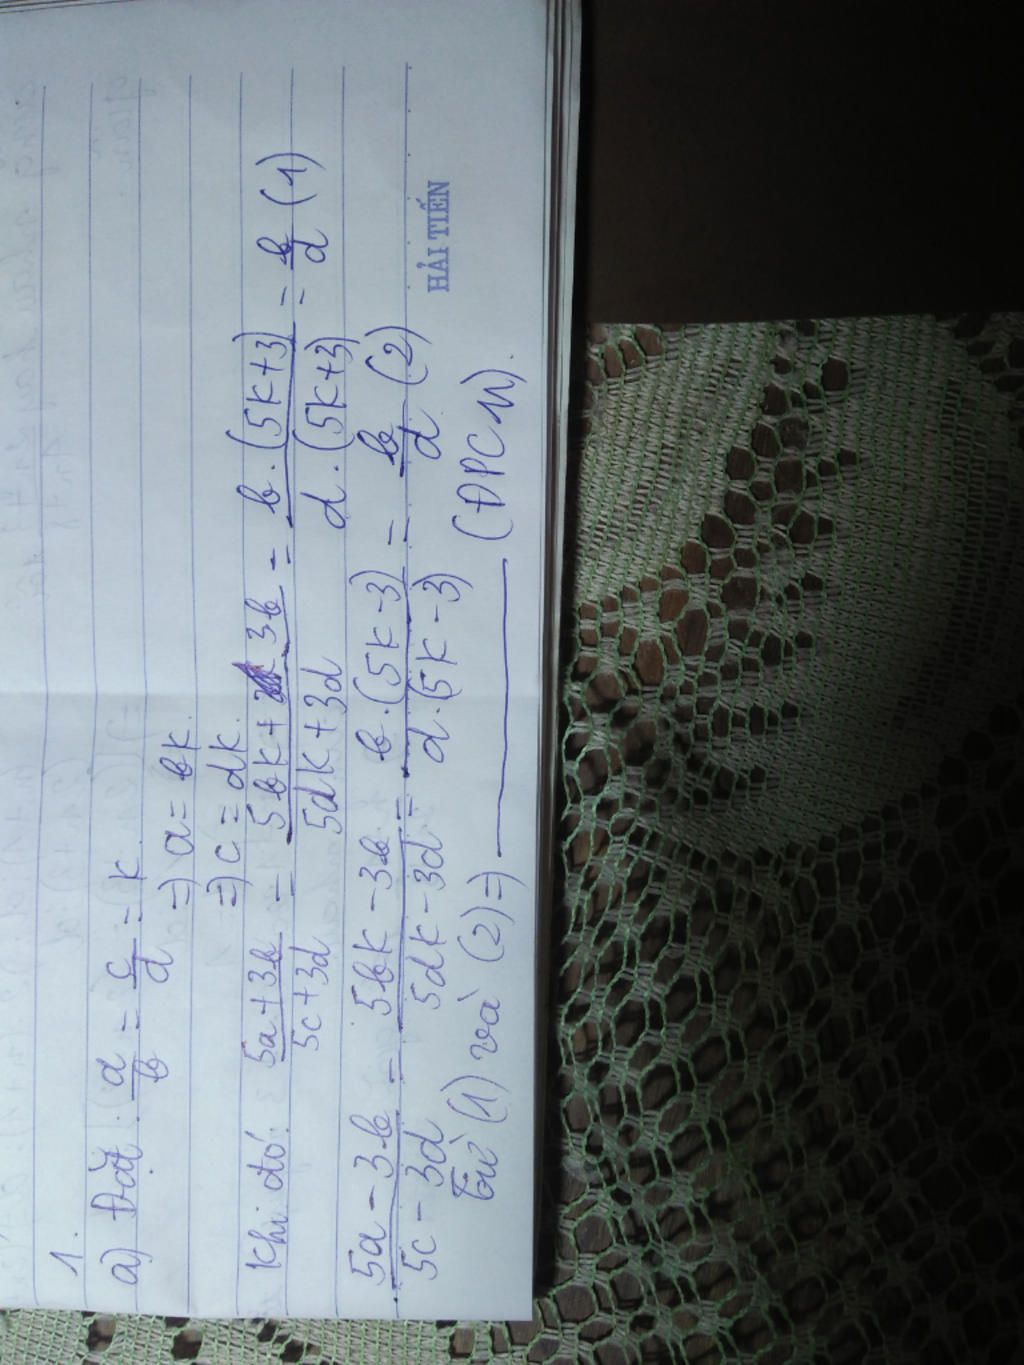 1.
a) Đặt: a/b = c/d = k
=) a = bk
=) c = dk
Khi đó: (5a + 3b)/(5c + 3d) = (5bk + 3b)/(5dk + 3d) = (b . (5k + 3))/(d . (5k + 3)) = b/d (1)
(5a - 3b)/(5c - 3d) = (5bk - 3b)/(5dk - 3d) = (b . (5k - 3))/(d . (5k - 3)) = b/d (2)
HẢI TIẾN
Từ (1) và (2) =) ______ (ĐPCM).